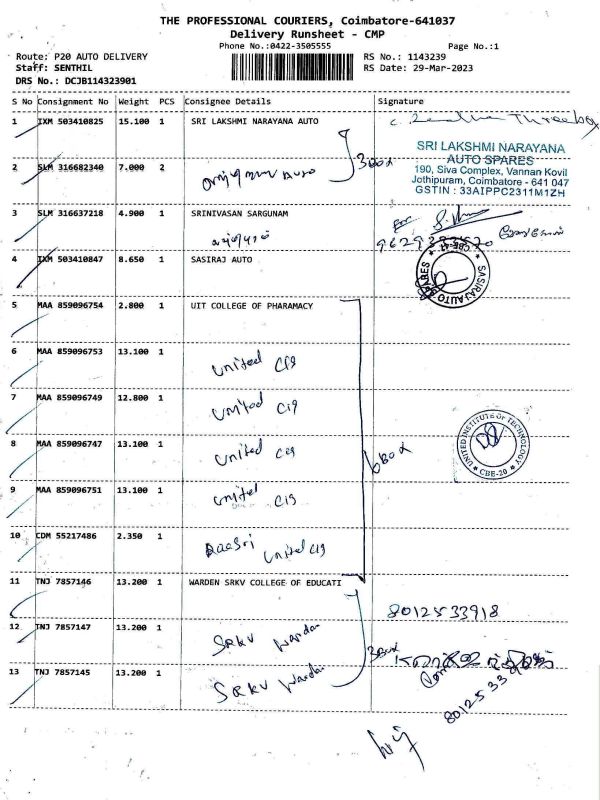 THE PROFESSIONAL COURIERS, Coimbatore-641037
Delivery Runsheet - CMP
Phone No.:0422-3505555
Page No.:1
Route: P20 AUTO DELIVERY
RS No.: 1143239
Staff: SENTHIL
RS Date: 29-Mar-2023
DRS No.: DCJB114323901
S No Consignment No Weight PCS Consignee Details Signature
1 IXM 503410825 15.100 1 SRI LAKSHMI NARAYANA AUTO
SRI LAKSHMI NARAYANA
AUTO SPARES
190, Siva Complex, Vannan Kovil
Jothipuram, Coimbatore - 641 047
GSTIN : 33AIPPC2311M1ZH
2 SLM 316682340 7.000 2
3 Box
3 SLM 316637218 4.900 1 SRINIVASAN SARGUNAM
for
4 IXM 503410847 8.650 1 SASIRAJ AUTO
SASIRAJ AUTO SPARES
CBE-47
5 MAA 859096754 2.800 1 UIT COLLEGE OF PHARAMACY
6 MAA 859096753 13.100 1
United
7 MAA 859096749 12.800 1
United
8 MAA 859096747 13.100 1
United
6 Box
UNITED INSTITUTE OF TECHNOLOGY
CBE-20
9 MAA 859096751 13.100 1
United
10 CDM 55217486 2.350 1
United
11 TNJ 7857146 13.200 1 WARDEN SRKV COLLEGE OF EDUCATI
8012533918
12 TNJ 7857147 13.200 1
SRKV Warden
3 Box
13 TNJ 7857145 13.200 1
SRKV Warden